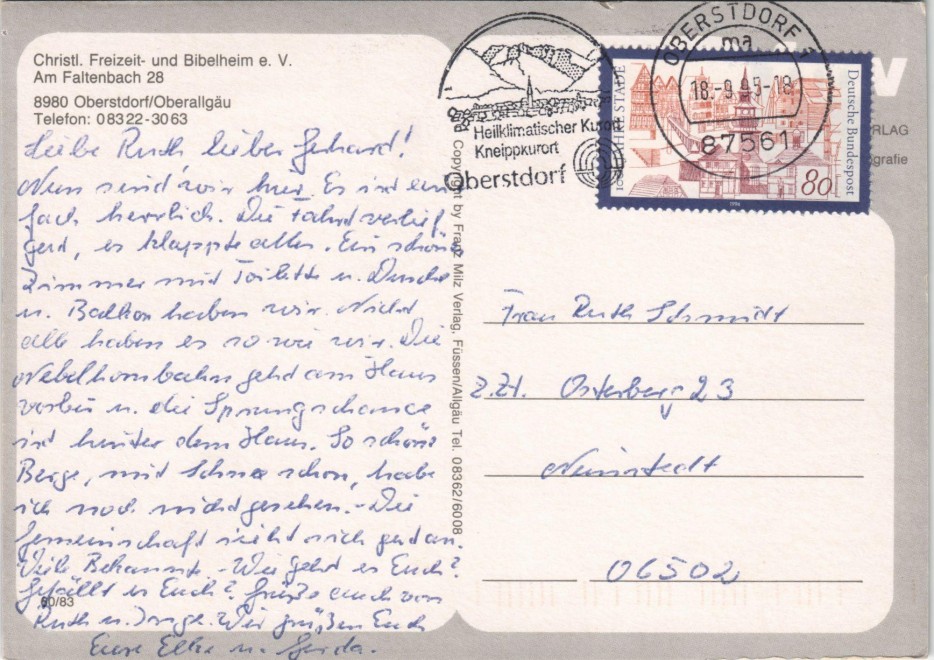 Christl. Freizeit- und Bibelheim e. V.
Am Faltenbach 28
8980 Oberstdorf/Oberallgäu
Telefon: 08322-3063
Liebe Ruth lieber Gerhard!
Nun sind wir hier. Es ist ein
fach herrlich. Die Fahrt verlief
gut, es klappte alles. Ein schönes
Zimmer mit Toilette u. Dusche
u. Balkon haben wir. Nicht
alle haben es so wie wir. Die
Nebelhornbahn geht am Haus
vorbei u. die Sprungschance
ist hinter dem Haus. So schöne
Berge, mit Schnee schon, habe
ich noch nicht gesehen. - Die
Gemeinschaft sieht sich gut an.
Viele Bekannte. - Wie geht es Euch?
Gefällt es Euch? Grüße auch von
Ruth u. Wir grüßen Euch
Eure Elke u. Gerda.
60/83
Copyright by Franz Milz Verlag, Füssen/Allgäu Tel. 08362/6008
Heilklimatischer Kurort
Kneippkurort
Oberstdorf
OBERSTDORF 1
ma
18.-9.95-18
87561
ALTSTADT
Deutsche Bundespost
80
1994
V
RLAG
grafie
Frau Ruth Schmidt
z.Zt. Osterberg 23
Neinstedt
06502